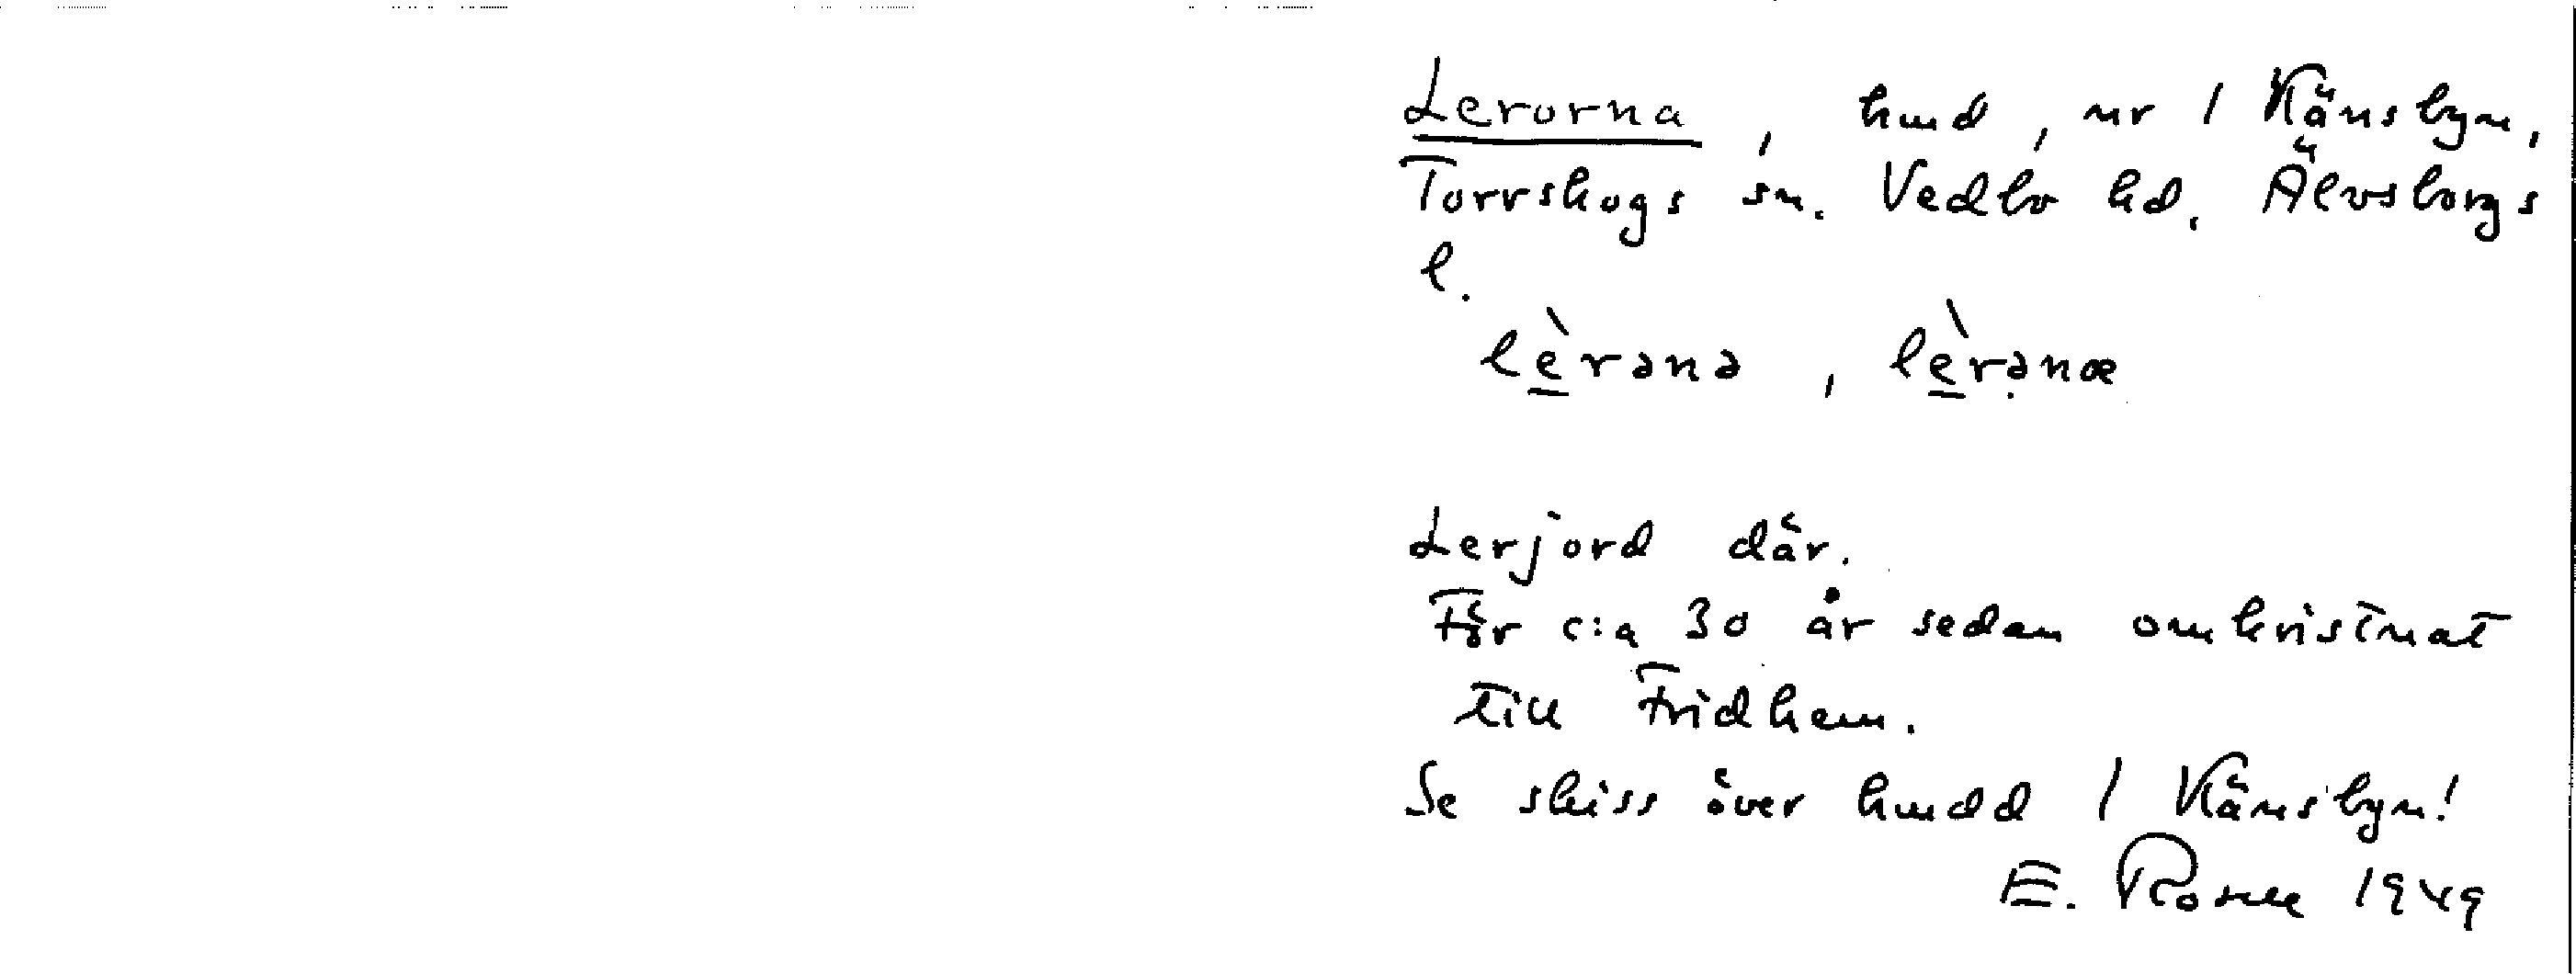 Lerorna, hmd, nr 1 Känsbyn,
Torrskogs sn. Vedbo hd. Älvsborgs
l.
lèrənə, lèrənæ
Lerjord där.
För c:a 30 år sedan omkristnat
till Fridhem.
Se skiss över hmdd 1 Känsbyn!
E. Rosell 1949